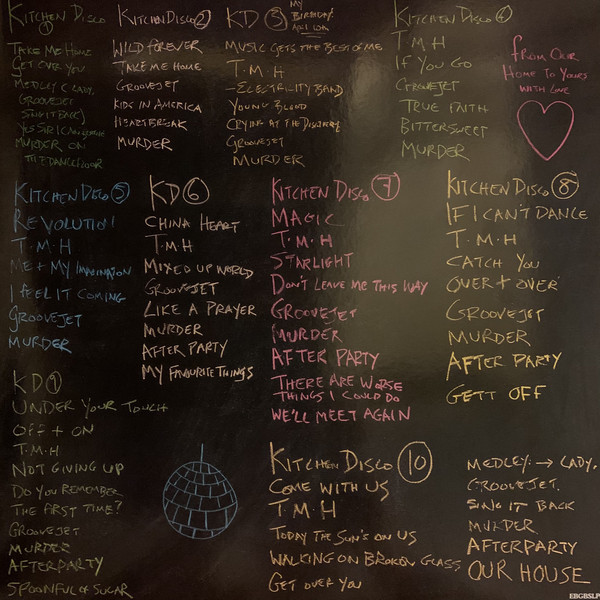 KITCHEN DISCO
1
TAKE ME HOME
GET OVER YOU
MEDLEY (LADY,
GROOVEJET
SING IT BACK)
YES SIR I CAN BOOGIE
MURDER ON
THE DANCEFLOOR
KITCHEN DISCO 2
WILD FOREVER
TAKE ME HOME
GROOVEJET
KIDS IN AMERICA
HEARTBREAK
MURDER
KD 3 MY
BIRTHDAY
MUSIC GETS THE BEST OF ME
T.M.H
YOUNG BLOOD
CRYING AT THE DISCOTEQUE
GROOVEJET
MURDER
KITCHEN DISCO 4
T.M.H
IF YOU GO
GROOVEJET
TRUE FAITH
BITTERSWEET
MURDER
FROM OUR
HOME TO YOURS
WITH LOVE
KITCHEN DISCO 5
REVOLUTION
T.M.H
ME + MY IMAGINATION
I FEEL IT COMING
GROOVEJET
MURDER
KD 6
CHINA HEART
T.M.H
MIXED UP WORLD
GROOVEJET
LIKE A PRAYER
MURDER
AFTER PARTY
MY FAVOURITE THINGS
KITCHEN DISCO 7
MAGIC
T.M.H
STARLIGHT
DON'T LEAVE ME THIS WAY
GROOVEJET
MURDER
AFTER PARTY
THERE ARE WORSE
THINGS I COULD DO
WE'LL MEET AGAIN
KITCHEN DISCO 8
IF I CAN'T DANCE
T.M.H
CATCH YOU
OVER + OVER
GROOVEJET
MURDER
AFTER PARTY
GETT OFF
KD 9
UNDER YOUR TOUCH
OFF + ON
T.M.H
NOT GIVING UP
DO YOU REMEMBER
THE FIRST TIME?
GROOVEJET
MURDER
AFTERPARTY
SPOONFUL OF SUGAR
KITCHEN DISCO 10
COME WITH US
T.M.H
TODAY THE SUN'S ON US
WALKING ON BROKEN GLASS
GET OVER YOU
MEDLEY: → LADY,
GROOVEJET.
SING IT BACK
MURDER
AFTERPARTY
OUR HOUSE
EBGBSLP